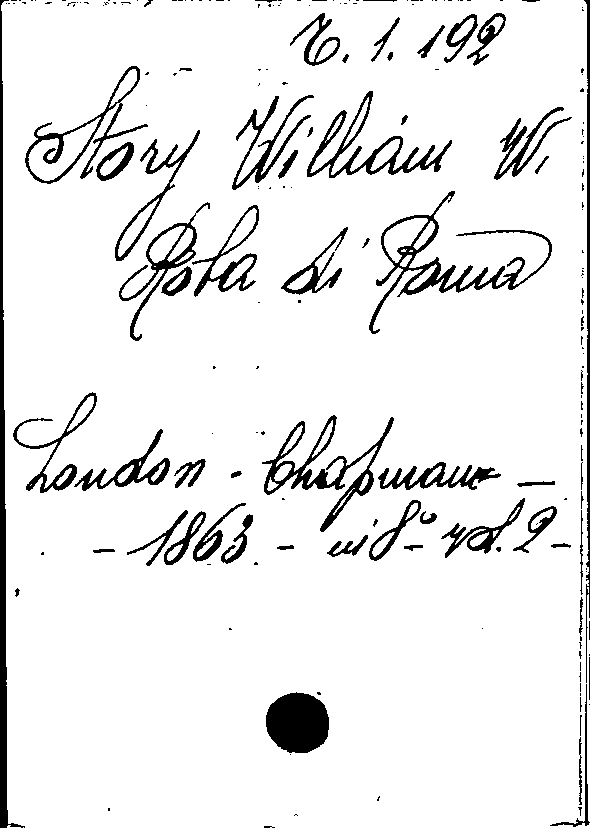 6.1.192
Story William W.
Roba di Roma
London - Chapman -
- 1863 - in 8º vol. 2 -